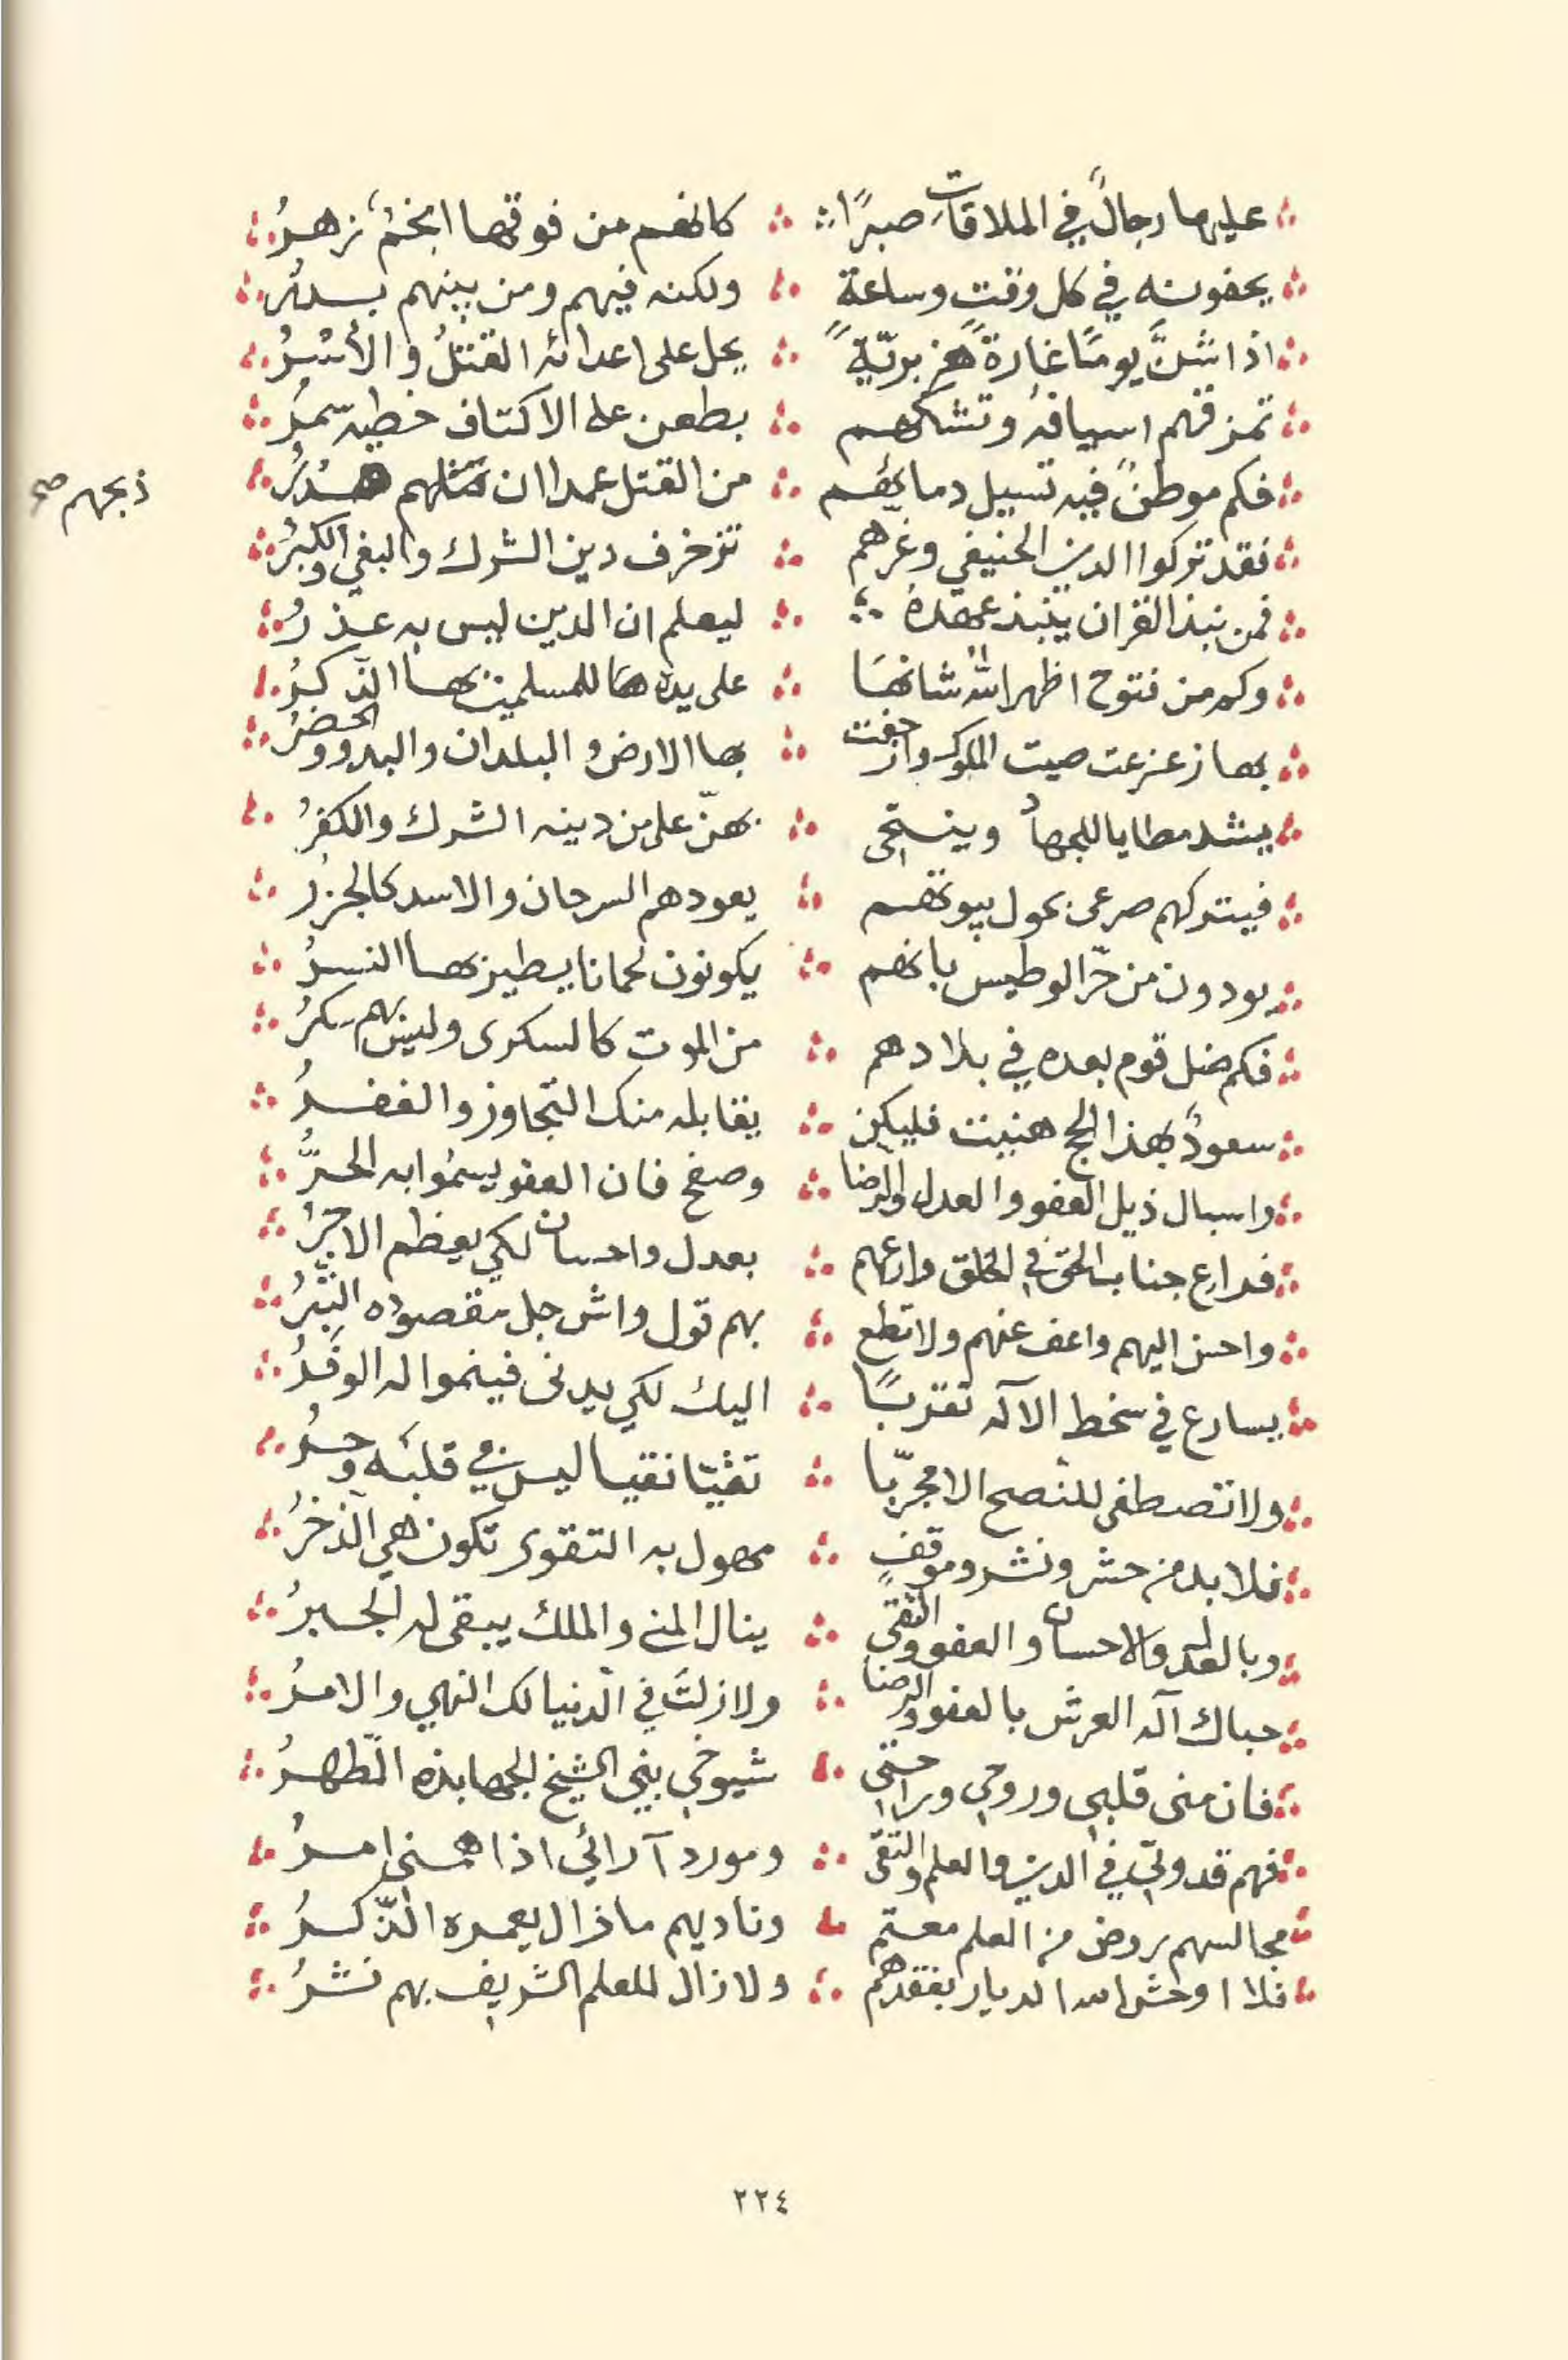 عليها رجالٌ في الملاقات صبرًا كانهم من فوقها انجمٌ زهرُ
يحفونه في كل وقتٍ وساعة ولكنه فيهم ومن بينهم بدرُ
اذا شنَّ يومًا غارةً هزبريّةً يحل على اعدائه القتلُ والأسرُ
تمزقهم اسيافهُ وتشكهم بطعن على الاكتاف خطيه سمرُ
فكم موطنً فيه تسيل دمائهم من القتل عمدا ان قتلهم هدرُ
ذبحهم صح
فقد تركوا الدين الحنيفي وغرهم تزخرف دين الشرك والبغي والكبرُ
فمن ينبذ القران ينبذ عهدهُ ليعلم ان الدين ليس به عذرُ
وكم من فتوح اظهر الله شانهَا على يده هَا للمسلمين بها الذّكرُ
بها زعزعت صيت الملوك وارجفت بها الارض والبلدان والبدو والحضرُ
يشد مطايا للجهاد وينتحي بهنّ على من دينه الشرك والكفرُ
فيتركهم صرعى بحول بيوتهم يعودهم السرحان والاسد كالجزرُ
يودون من حرّ الوطيس بانهم يكونون لحمانا يطير بها النسرُ
فكم ضل قوم بعده في بلادهم من الموتِ كالسكرى وليس بهم سكرُ
سعودٌ بهذا الحج هنيت فليكن يقابله منك التّجاوز والغفرُ
واسبال ذيل العفو والعدل والرضا وصفح فان العفو يسمُوا به الحرُّ
فدارع جناب الحق في الخلق وارعهم بعدل واحسان لكي يعظم الاجرُ
واحسن اليهم واعف عنهم ولا تطع بهم قول واش جل مقصوده النّبرُ
يسارع في سخط الآله تقربًا اليك لكي يدنى فينموا له الوفرُ
ولا تصطفي للنصح الا مجرّبا تقيّا نقيا ليس في قلبه وحرُ
فلا بد من حشر ونشر وموقفٍ مهول به التقوى تكون هي الذّخرُ
وبالعدل والاحسان والعفو والتقى ينال المنى والملك يبقى له الجبرُ
حباك آله العرش بالعفو والرضا ولا زلتَ في الدّنيا لك النهي والامرُ
فان منى قلبي وروحي وراحتي شيوخي بني الشيخ الجهابذه الطّهرُ
فهم قدوتي في الدين والعلم والتقى ومورد آرائي اذا همنى امرُ
مجالسهم روض من العلم معتم وناديهم ما زال يعمره الذّكرُ
فلا اوحش الله الديار بفقدهم ولا زال للعلم الشريف بهم نشرُ
٢٢٤